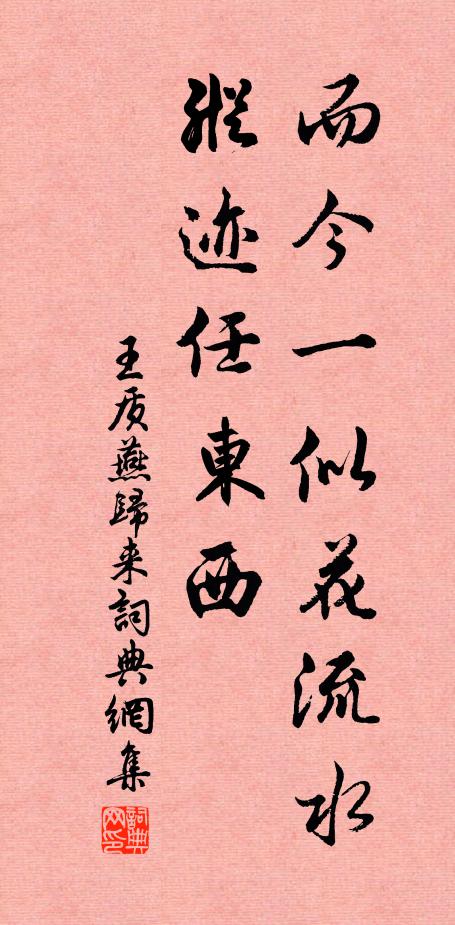 而今一似花流水
蹤迹任東西
王质燕歸来詞典網集
詞典
网印